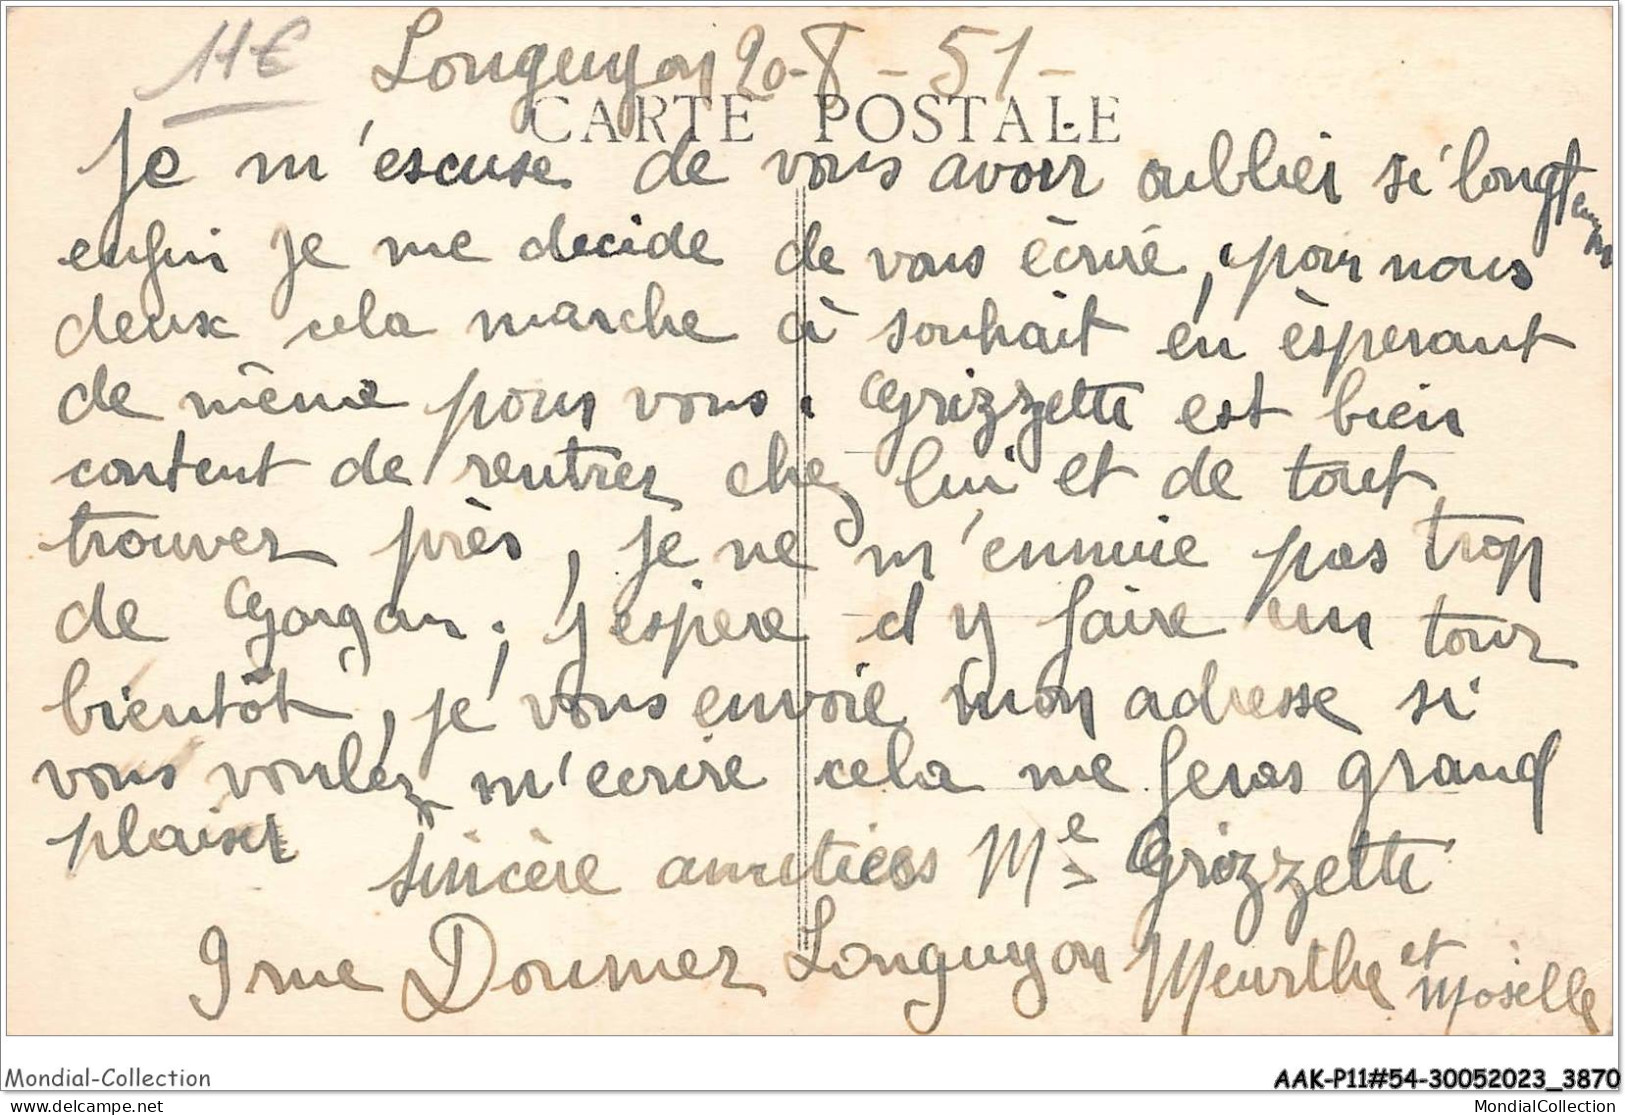 11€ Longuyon 20-8-51-
CARTE POSTALE
Je m'escuse de vous avoir oublier si longtemps
enfin je me decide de vous écriré, pour nous
deux cela marche à souhait en èsperant
de même pour vous. Grizzette est bien
content de rentrer chez lui et de tout
trouver près, je ne m'ennuie pas trop
de Gargan; j'espere d'y faire un tour
bientôt, je vous envoie mon adresse si
vous voulez m'ecrire cela me feras grand
plaiser
sincère amitiées Me Grizzette
9 rue Doumer Longuyon Meurthe et Moselle
Mondial-Collection
AAK-P11#54-30052023_3870
www.delcampe.net
MondialCollection